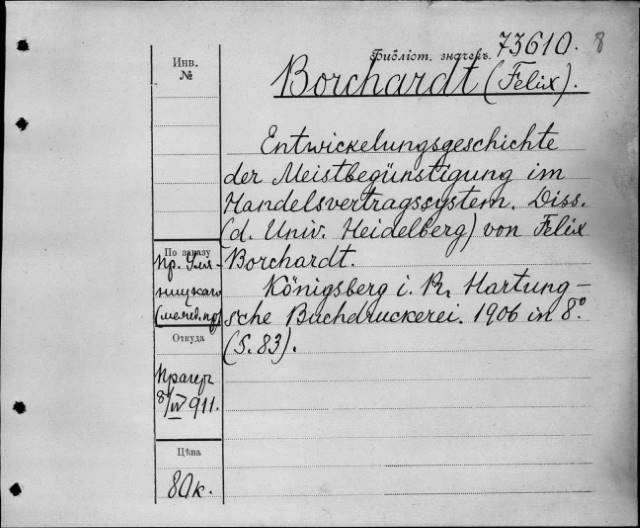 Инв.
№
Бібліот. значекъ. 73610. 8
Borchardt (Felix).
Entwickelungsgeschichte
der Meistbegünstigung im
Handelsvertragssystem. Diss.
(d. Univ. Heidelberg) von Felix
Borchardt.
Königsberg i. Pr. Hartung-
sche Buchdruckerei. 1906 in 8°.
(S. 83).
По заказу
пр.
Откуда
Прагеръ
8/IV 911.
Цѣна
80к.